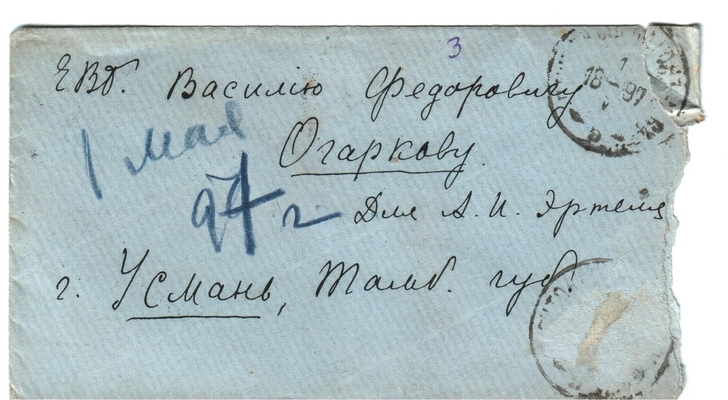 3
ЕВб. Василію Федоровичу
Огаркову.
1 мая
97 г
Для А. И. Эртеля
г. Усмань, Тамб. губ.
1
18-97
V